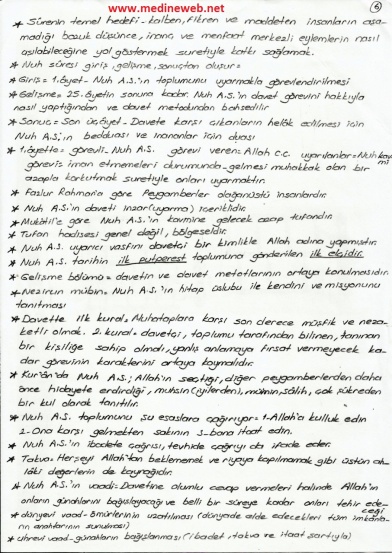 www.medineweb.net
6
* Sûrenin temel hedefi - kalben, fikren ve madden insanların aşa-
madığı bozuk düşünce, inanç ve menfaat merkezli eylemlerin nasıl
aşılabileceğine yol göstermek suretiyle katkı sağlamak.
* Nuh sûresi giriş, gelişme, sonuçtan oluşur =
* Giriş = 1. âyet - Nuh A.S.'ın toplumunu uyarmakla görevlendirilmesi
* Gelişme = 25. âyetin sonuna kadar. Nuh A.S.'ın davet görevini hakkıyla
nasıl yaptığından ve davet metodundan bahsedilir.
* Sonuç = Son üç âyet - Davete karşı çıkanların helâk edilmesi için
Nuh A.S.'ın bedduası ve inananlar için duası
* 1. âyette = görevli - Nuh A.S. görevi veren = Allah c.c. uyarılanlar = Nuh kav
mi
görevi = iman etmemeleri durumunda - gelmesi muhakkak olan bir
azapla korkutmak suretiyle onları uyarmaktır.
* Fazlur Rahman'a göre Peygamberler olağanüstü insanlardır.
* Nuh A.S.'ın daveti inzar (uyarma) içeriklidir.
* Mukâtil'e göre Nuh A.S.'ın kavmine gelecek azap tufandır.
* Tufan hadisesi genel değil, bölgeseldir.
* Nuh A.S. uyarıcı vasfını davetçi bir kimlikle Allah adına yapmıştır.
* Nuh A.S. tarihin ilk putperest toplumuna gönderilen ilk elçidir.
* Gelişme bölümü = davetin ve davet metotlarının ortaya konulmasıdır.
* Nezirun mübin = Nuh A.S.'ın hitap üslubu ile kendini ve misyonunu
tanıtması
* Davette ilk kural = Muhataplara karşı son derece müşfik ve neza-
ketli olmak. 2. kural = davetçi, toplumu tarafından bilinen, tanınan
bir kişiliğe sahip olmalı, yanlış anlamaya fırsat vermeyecek ka-
dar görevinin karakterini ortaya koymalıdır.
* Kur'ân'da Nuh A.S.; Allah'ın seçtiği, diğer peygamberlerden daha
önce hidayete erdirdiği, muhsin (iyilerden), mü'min, sâlih, çok şükreden
bir kul olarak tanıtılır.
* Nuh A.S. toplumunu şu esaslara çağırıyor = 1-Allah'a kulluk edin
2-Ona karşı gelmekten sakının 3-bana itaat edin.
* Nuh A.S.'ın ibadete çağrısı, tevhide çağrıyı da ifade eder.
* Takva = Herşeyi Allah'tan beklememek ve riyaya kapılmamak gibi üstün ah-
lâki değerlerin de kaynağıdır.
* Nuh A.S.'ın vaadi = Davetine olumlu cevap vermeleri halinde Allah'ın
onların günahlarını bağışlayacağı ve belli bir süreye kadar onları tehir ede-
ceği
* dünyevi vaad - ömürlerinin uzatılması (dünyada elde edecekleri tüm imkânla-
rın önlerinin sunulması)
* uhrevi vaad - günahların bağışlanması (ibadet, takva ve itaat şartıyla)